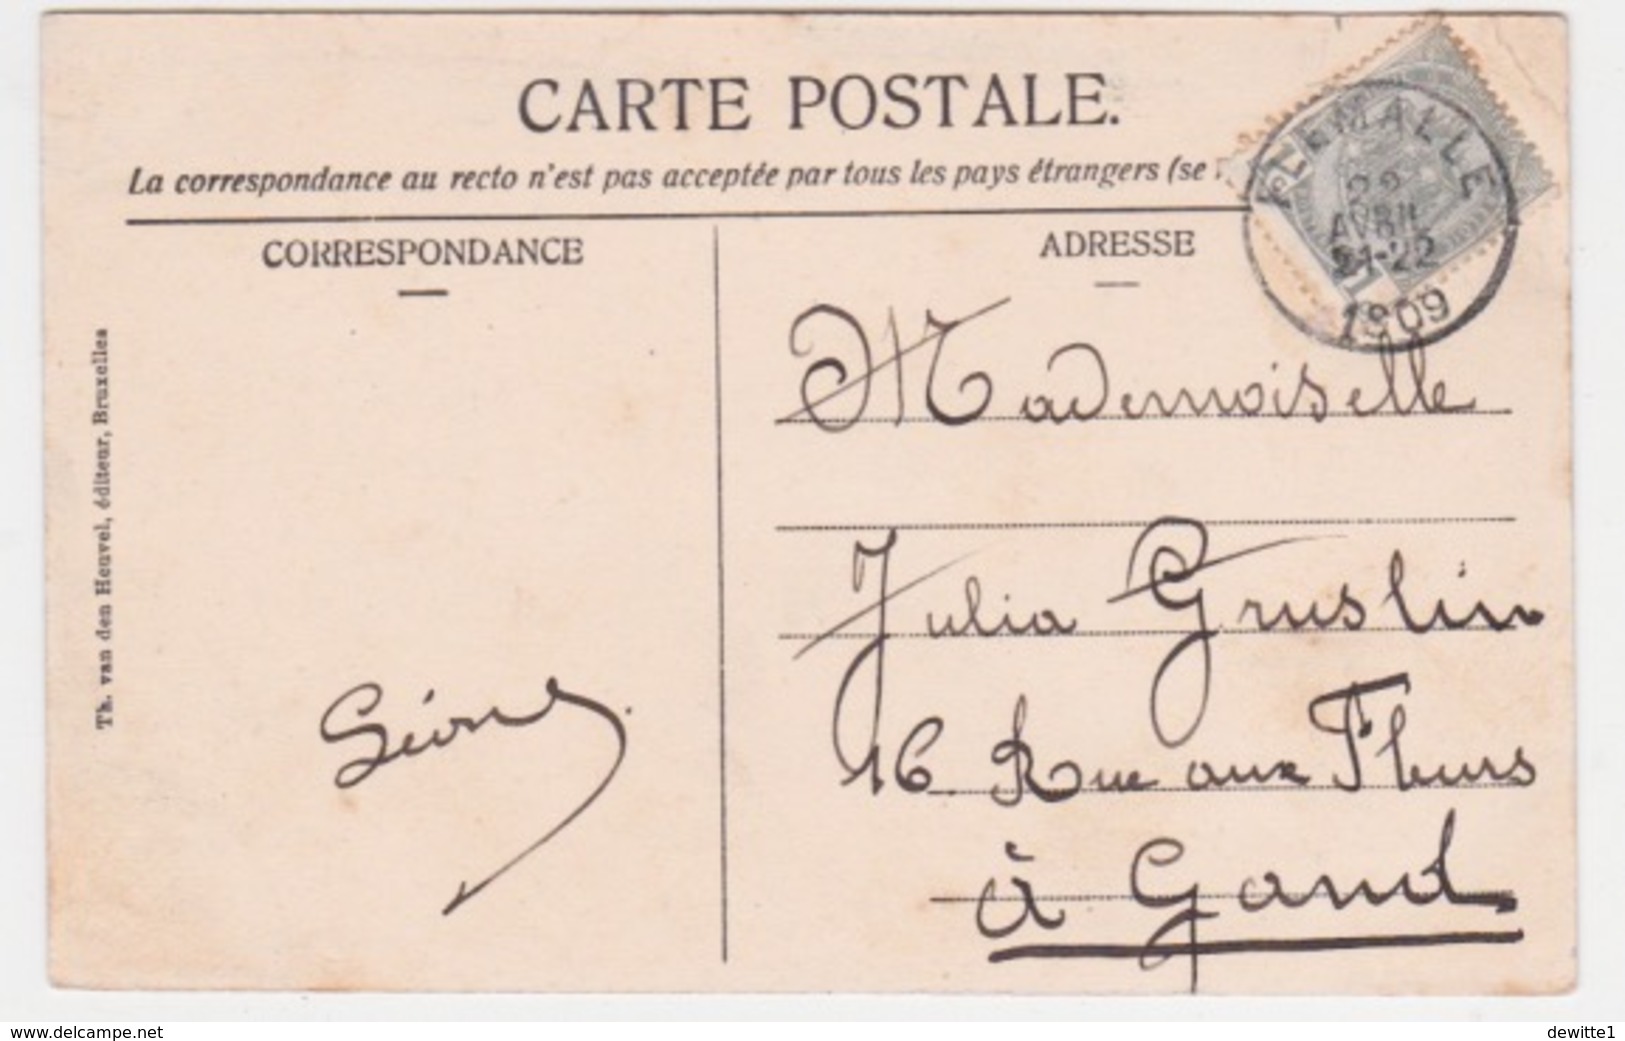 CARTE POSTALE.
La correspondance au recto n'est pas acceptée par tous les pays étrangers (se
CORRESPONDANCE
ADRESSE
22
AVRIL
21-22
1909
Mademoiselle
Julia Gruslin
16. Rue aux Fleurs
à Gand
Th. van den Heuvel, éditeur, Bruxelles
www.delcampe.net
dewitte1